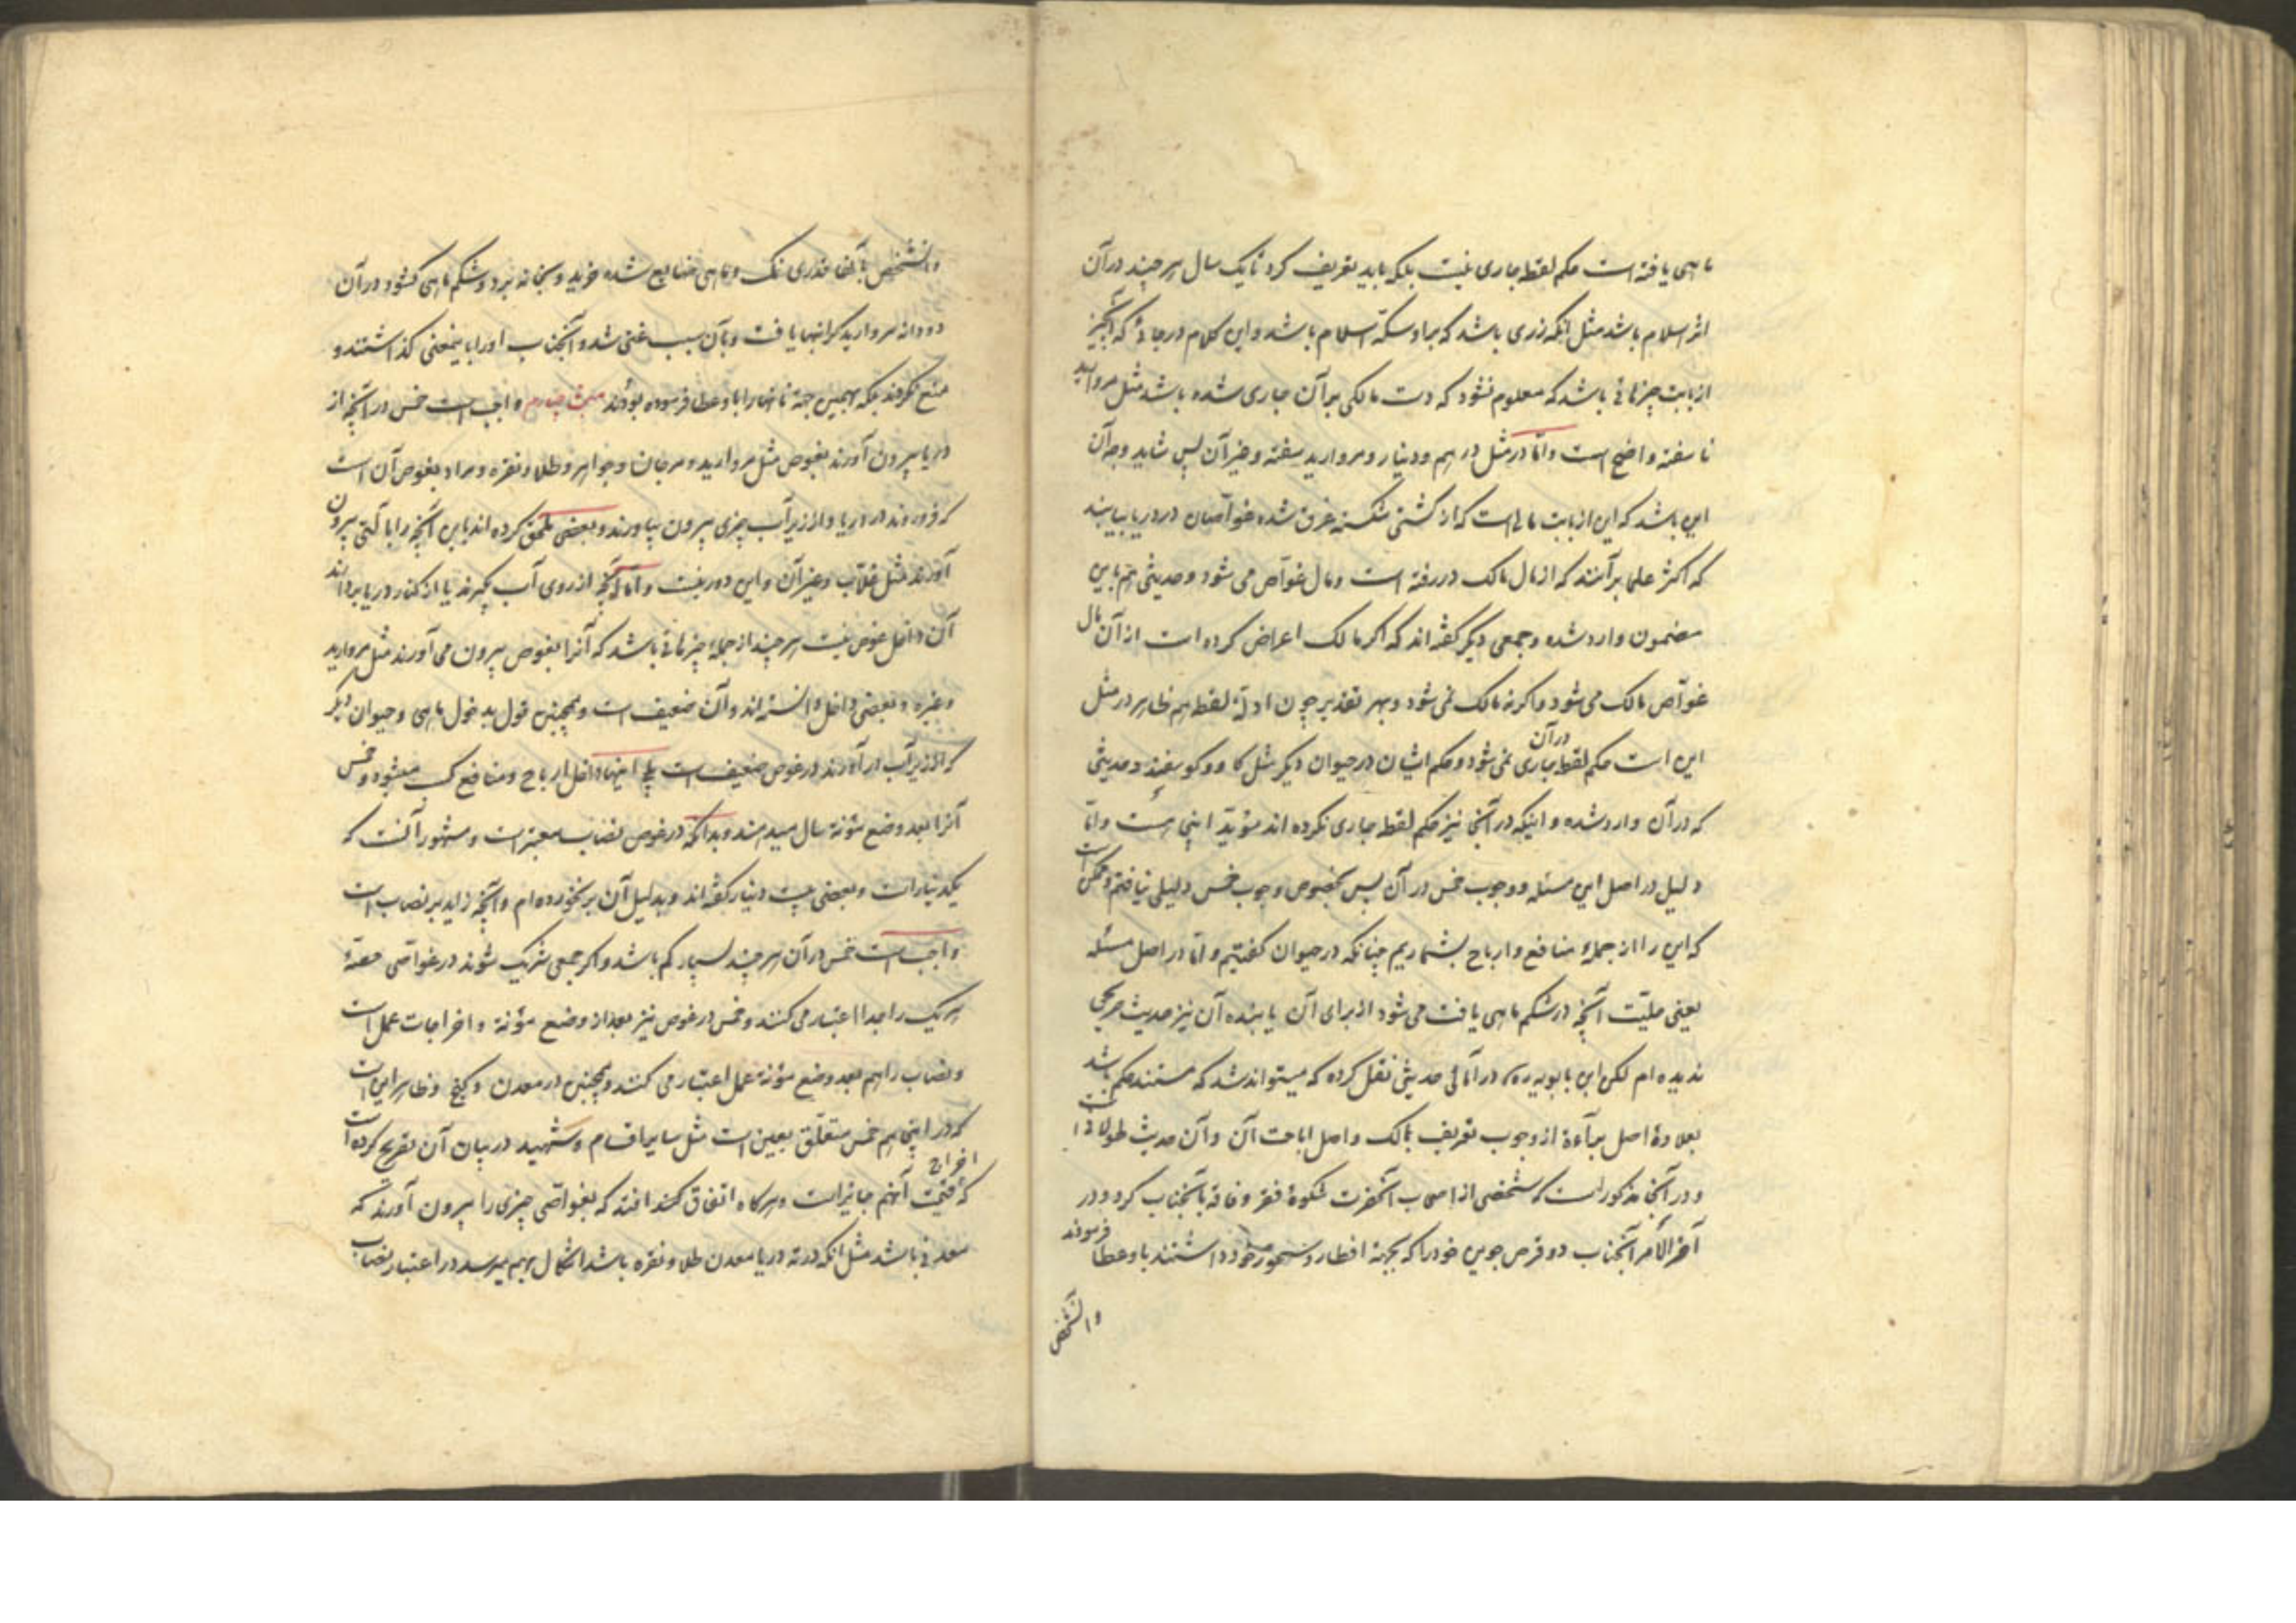 ماهی یافته است حکم لقطه جاری نیست بلکه باید تعریف کرد تا یک سال هر چند در آن
اثر اسلام باشد مثل آنکه زری باشد که بر او سکّهٔ اسلام باشد و این کلام در جائی که آنچیز
از بابت چیزهائی باشد که معلوم نشود که دست مالکی بر آن جاری شده باشد مثل مروارید
ناسفته واضح است و امّا در مثل درهم و دینار و مروارید سفته و غیر آن پس شاید وجه آن
این باشد که این از بابت مالی است که از کشتی شکسته غرق شده غوّاصان در دریا بیابند
که اکثر علما بر آنند که از مال مالک در رفته است و مال غوّاص می شود و حدیثی هم باین
مضمون وارد شده و جمعی دیگر گفته اند که اگر مالک اعراض کرده است از آن مال
غوّاص مالک می شود و اگر نه مالک نمی شود و بهر تقدیر چون ادلّهٔ لقطه هم ظاهر در مثل
این است حکم لقطه در آن جاری نمی شود و حکم ایشان در حیوان دیگر مثل گاو و گوسفند و حدیثی
که در آن وارد شده و اینکه در آنجا نیز حکم لقطه جاری نکرده اند مؤید اینجا هست و امّا
دلیل در اصل این مسئله و وجوب خمس در آن پس بخصوص وجوب خمس دلیلی نیافتم و ممکن است
که این را از جملهٔ منافع و ارباح بشماریم چنانکه در حیوان گفتیم و امّا در اصل مسئله
یعنی ملیّت آنچه در شکم ماهی یافت می شود از برای آن یابنده آن نیز حدیث صریحی
ندیده ام لکن ابن بابویه ره در امالی حدیثی نقل کرده که میتواند شد که مستند حکم باشد
بعلاوهٔ اصل برآءة از وجوب تعریف مالک و اصل اباحت آن و آن حدیث طولانی است
و در آنجا مذکور است که شخصی از اصحاب آنحضرت شکوهٔ فقر و فاقه بآنجناب کرد و در
آخر الأمر آنجناب دو قرص جوین خود را که بجهة افطار و سحور خود داشتند باو عطا فرمودند
و آنشخص
و آنشخص بآنها قدری نمک و ماهی ضایع شده خرید و بخانه برد و شکم ماهی گشود در آن
دو دانه مروارید گرانبها یافت و بآن سبب غنی شد و آنجناب او را باینمعنی گذاشتند و
منع نکردند بلکه بهمین جهة نانها را باو عطا فرموده بودند مبحث چهارم واجب است خمس در آنچه از
دریا بیرون آورند بغوص مثل مروارید و مرجان و جواهر و طلا و نقره و مراد بغوص آن است
که فرو روند در دریا و از زیر آب چیزی بیرون بیاورند و بعضی ملحق کرده اند باین آنچه را با آلتی بیرون
آورند مثل قلّاب و غیر آن و این دور نیست و امّا آنچه از روی آب بگیرند یا از کنار دریا بردارند
آن داخل غوص نیست هر چند از جمله چیزهائی باشد که آنرا بغوص بیرون می آورند مثل مروارید
و غیره و بعضی داخل دانسته اند و آن ضعیف است و همچنین قول بدخول ماهی و حیوان دیگر
که از زیر آب در آورند در غوص ضعیف است بلی اینها داخل ارباح و منافع کسب میشود و خمس
آنرا بعد وضع مؤنة سال میدهند و بدانکه در غوص نصاب معتبر است و مشهور آنست که
یکدینار است و بعضی بیست دینار گفته اند و بدلیل آن بر نخورده ام و آنچه زاید بر نصاب است
واجب است خمس در آن هر چند بسیار کم باشد و اگر جمعی شریک شوند در غوّاصی حصّهٔ
هر یک را جدا اعتبار می کنند و خمس در غوص نیز بعد از وضع مؤنة و اخراجات عمل است
و نصاب را هم بعد وضع مؤنة عمل اعتبار می کنند و همچنین در معدن و گنج و ظاهر این است
که در اینجا هم خمس متعلّق بعین است مثل سایر اقسام و شهید در بیان آن تصریح کرده است
که اخراج قیمت آنهم جایز است و هرگاه اتفاق کند افتد که بغوّاصی چیزی را بیرون آورند که
معدنی باشد مثل آنکه در ته دریا معدن طلا و نقره باشد اشکال بهم میرسد در اعتبار نصاب